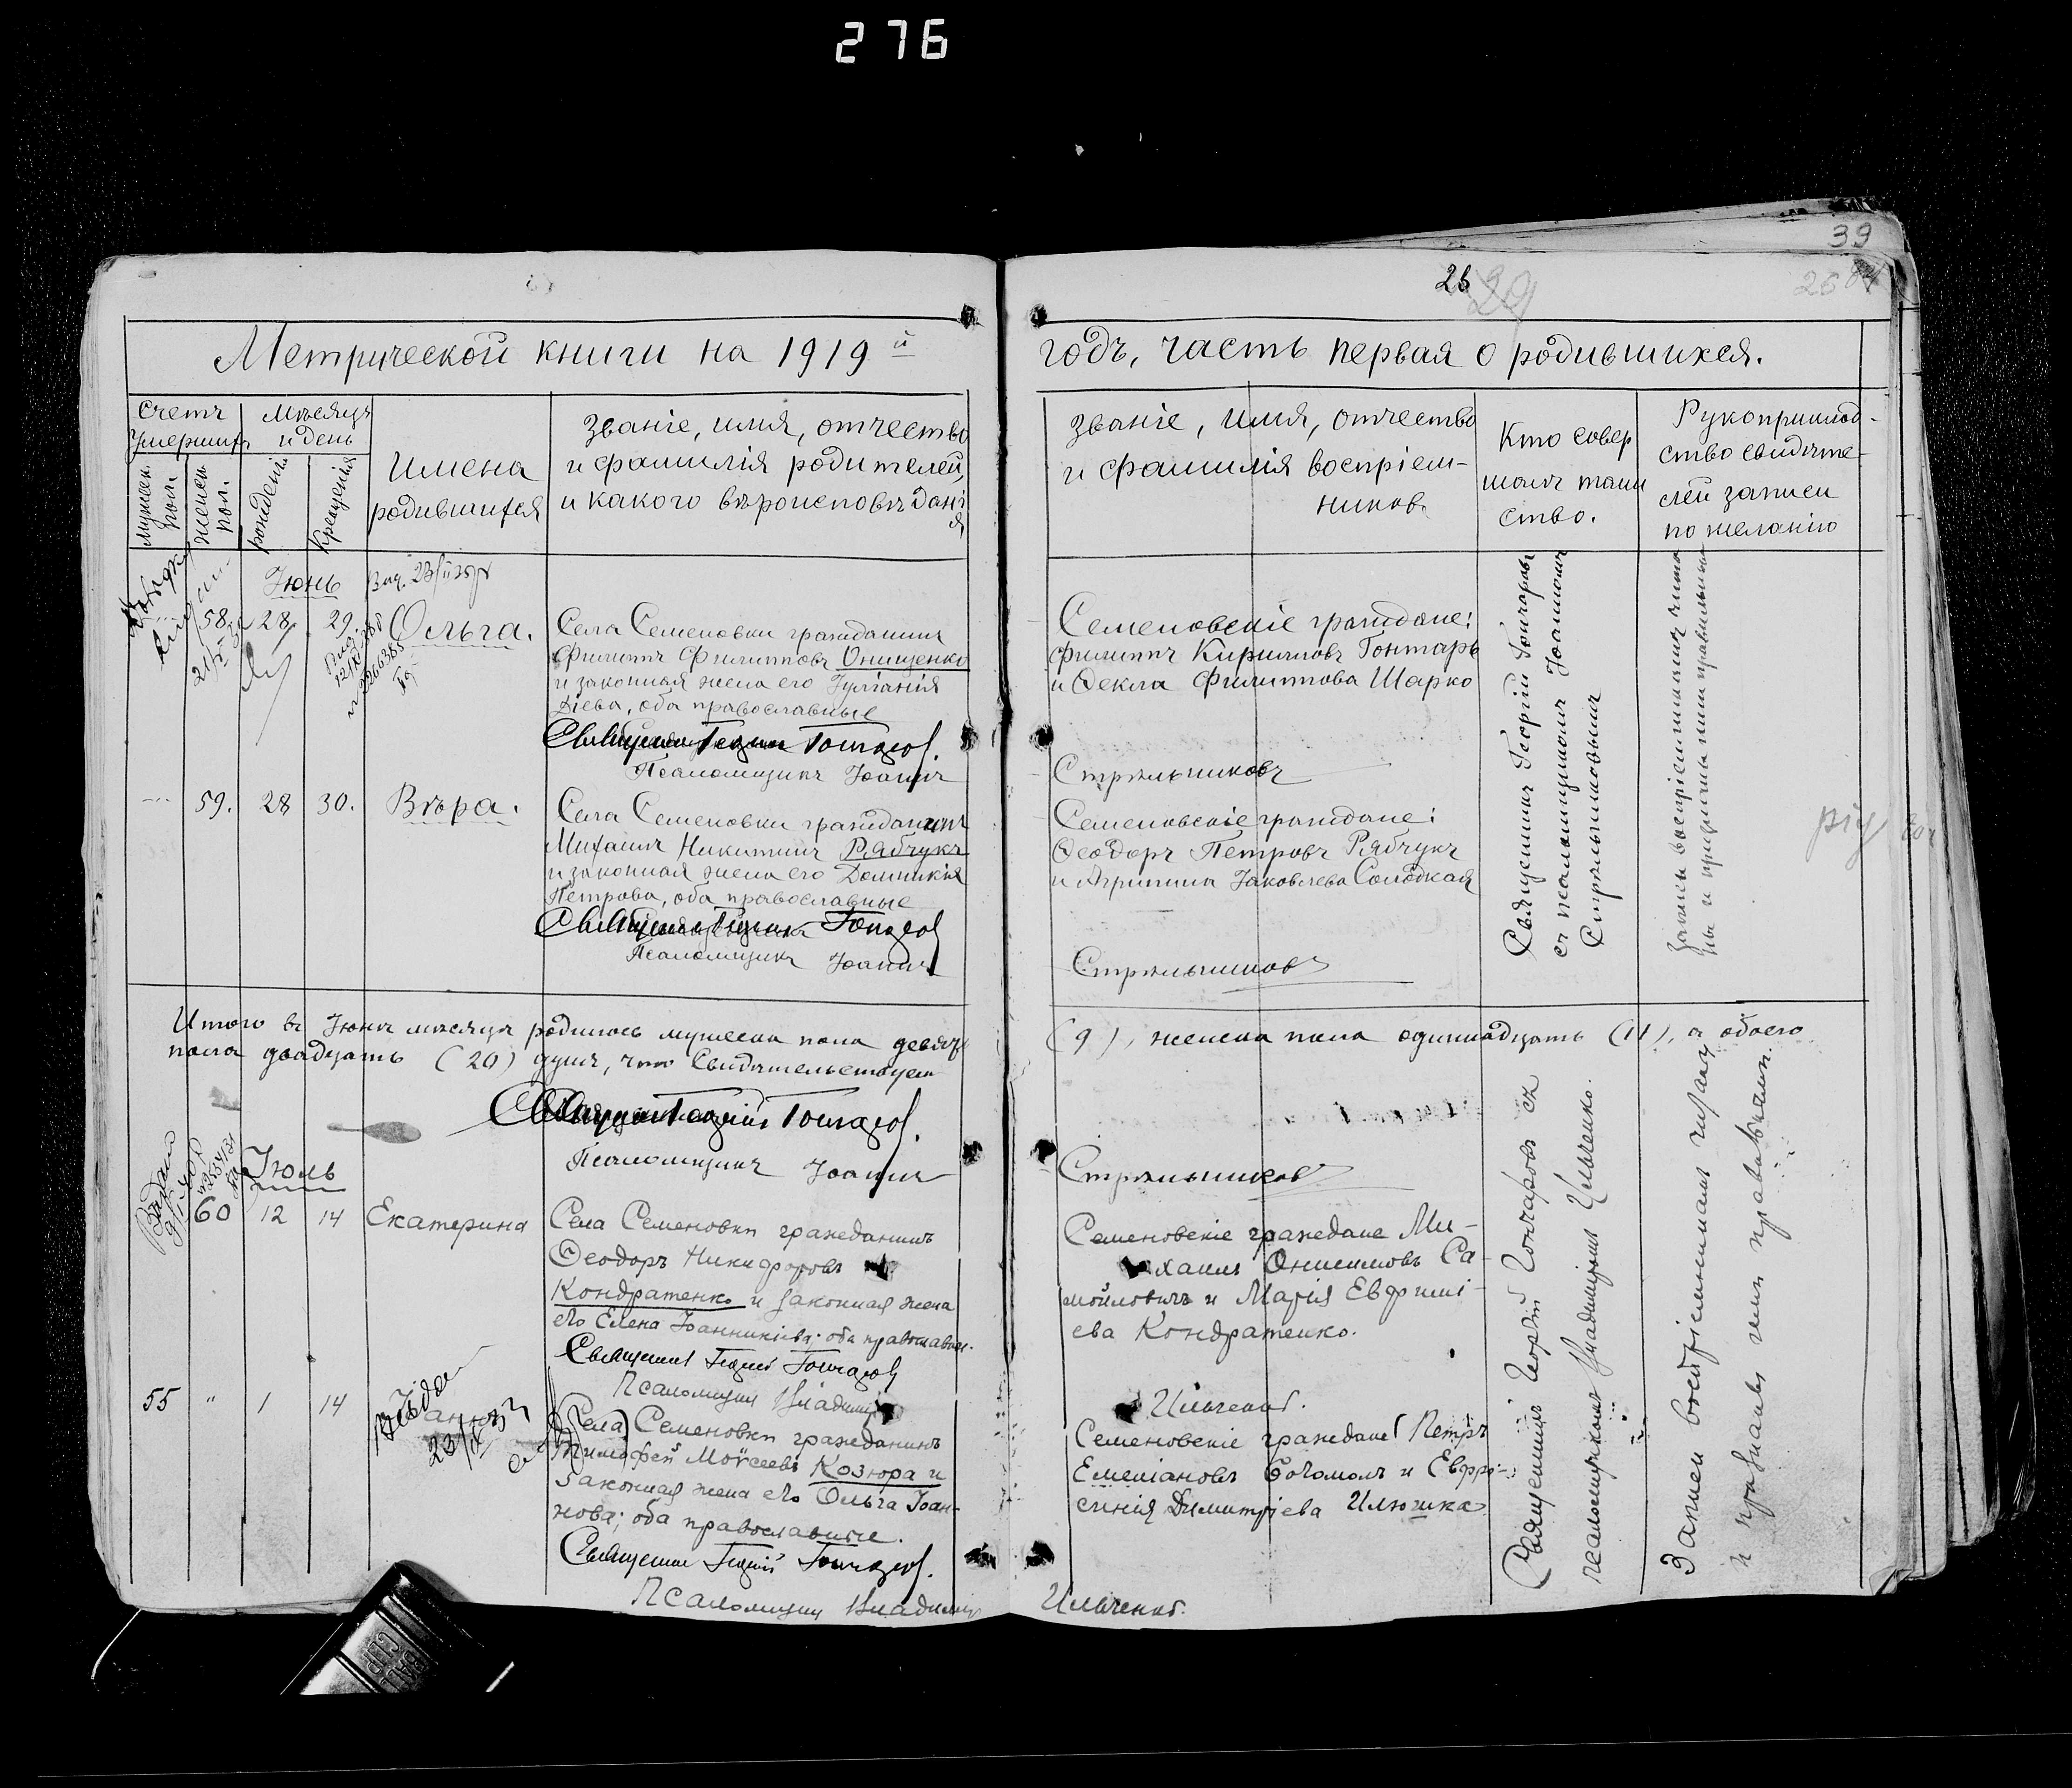 276
39
26
29
Метрической книги на 1919 й
годъ, часть первая о родившихся.
Счетъ умершихъ
Мужеск. пол.
Женск. пол.
Мѣсяцъ и день
рожденія
Крещенія
Имена
родившихся
Званіе, имя, отчество
и фамилія родителей,
и какого вѣроисповѣданія
Званіе, имя, отчество
и фамилія воспріем-
никовъ
Кто совер
шалъ таин
ство.
Рукоприклад-
ство свидѣте-
лей записи
по желанію
Іюнь
58. 28. 29. Ольга.
Села Семеновки гражданинъ
Филиппъ Филипповъ Онищенко
и законная жена его Іуліанія
оба православные
Псаломщикъ Іоаннъ
Семеновскіе граждане:
Филиппъ Кирилловъ Гонтарь
и Ѳекла Филиппова Шарко
Стрѣльниковъ
59. 28 30. Вѣра.
Села Семеновки гражданинъ
Михаилъ Никитинъ Рябчукъ
и законная жена его Домникія
Петрова, оба православные
Псаломщикъ Іоаннъ
Семеновскіе граждане:
Ѳеодоръ Петровъ Рябчукъ
и Агрипина Іаковлева Солодкая
Стрѣльниковъ
Священникъ Георгій Гончаровъ
съ псаломщикомъ Іоанномъ
Стрѣльниковымъ
Итого въ Іюнѣ мѣсяцѣ родилось мужеска пола девять
(9), женска пола одиннадцать (11), а обоего
пола двадцать (20) душъ, что свидѣтельствуетъ
Псаломщикъ Іоаннъ
Стрѣльниковъ
Іюль
60 12 14 Екатерина
Села Семеновки гражданинъ
Ѳеодоръ Никифоровъ
Кондратенко и законная жена
его Елена Іоанникіева; оба православн.
Священникъ Георгій Гончаровъ
Псаломщикъ Владиміръ
Семеновскіе граждане Ми-
хаилъ Онисимовъ Са-
мойловичъ и Марія Евфимі-
ева Кондратенко.
Ильченко.
55 " 1 14
Села Семеновки гражданинъ
Тимофей Моѵсеевъ Козюра и
законная жена его Ольга Іоан-
нова; оба православные.
Священникъ Георгій Гончаровъ.
Псаломщикъ Владиміръ
Семеновскіе граждане Петръ
Емеліановъ Богомолъ и Евфро-
синія Димитріева Илюшка
Ильченко.
Священникъ Георгій Гончаровъ съ
псаломщикомъ Владиміромъ Ильченко.
Записи воспріемникамъ читаны
и признаны ими правильными.